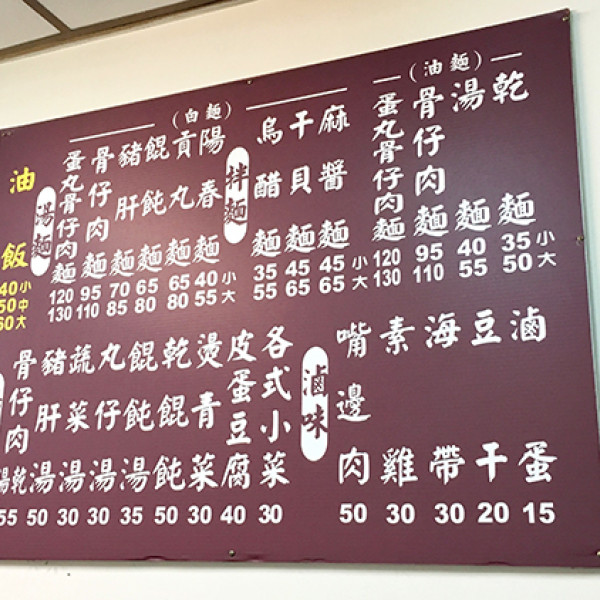 油飯
40小
50中
60大
（白麵）
湯麵
蛋丸骨仔肉麵 120 130
骨仔肉麵 95 110
豬肝麵 70 85
餛飩麵 65 80
貢丸麵 65 80
陽春麵 40小 55大
拌麵
烏醋麵 35 55
干貝麵 45 65
麻醬麵 45小 65大
（油麵）
蛋丸骨仔肉麵 120 130
骨仔肉麵 95 110
湯麵 40 55
乾麵 35小 50大
骨仔肉湯乾 55
豬肝湯 50
蔬菜湯 30
丸仔湯 30
餛飩湯 35
乾餛飩 50
燙青菜 30
皮蛋豆腐 40
各式小菜 30
滷味
嘴邊肉 50
素雞 30
海帶 30
豆干 20
滷蛋 15